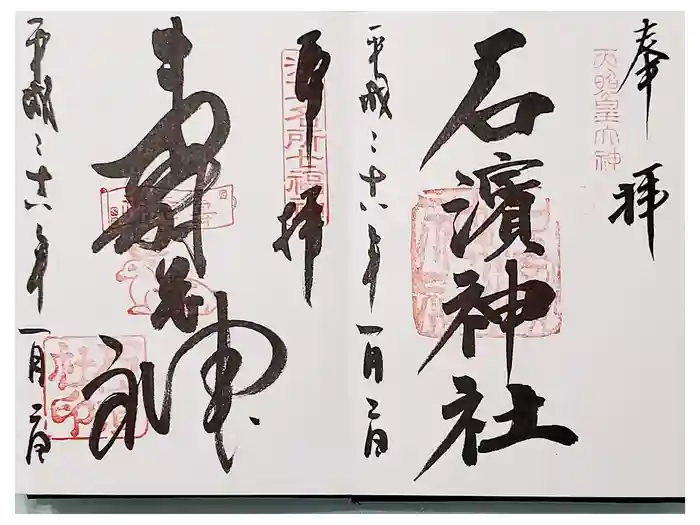 奉拝
天照皇大神
石濱神社
平成二十六年一月二日
奉拝
寿老神
平成二十六年一月二日